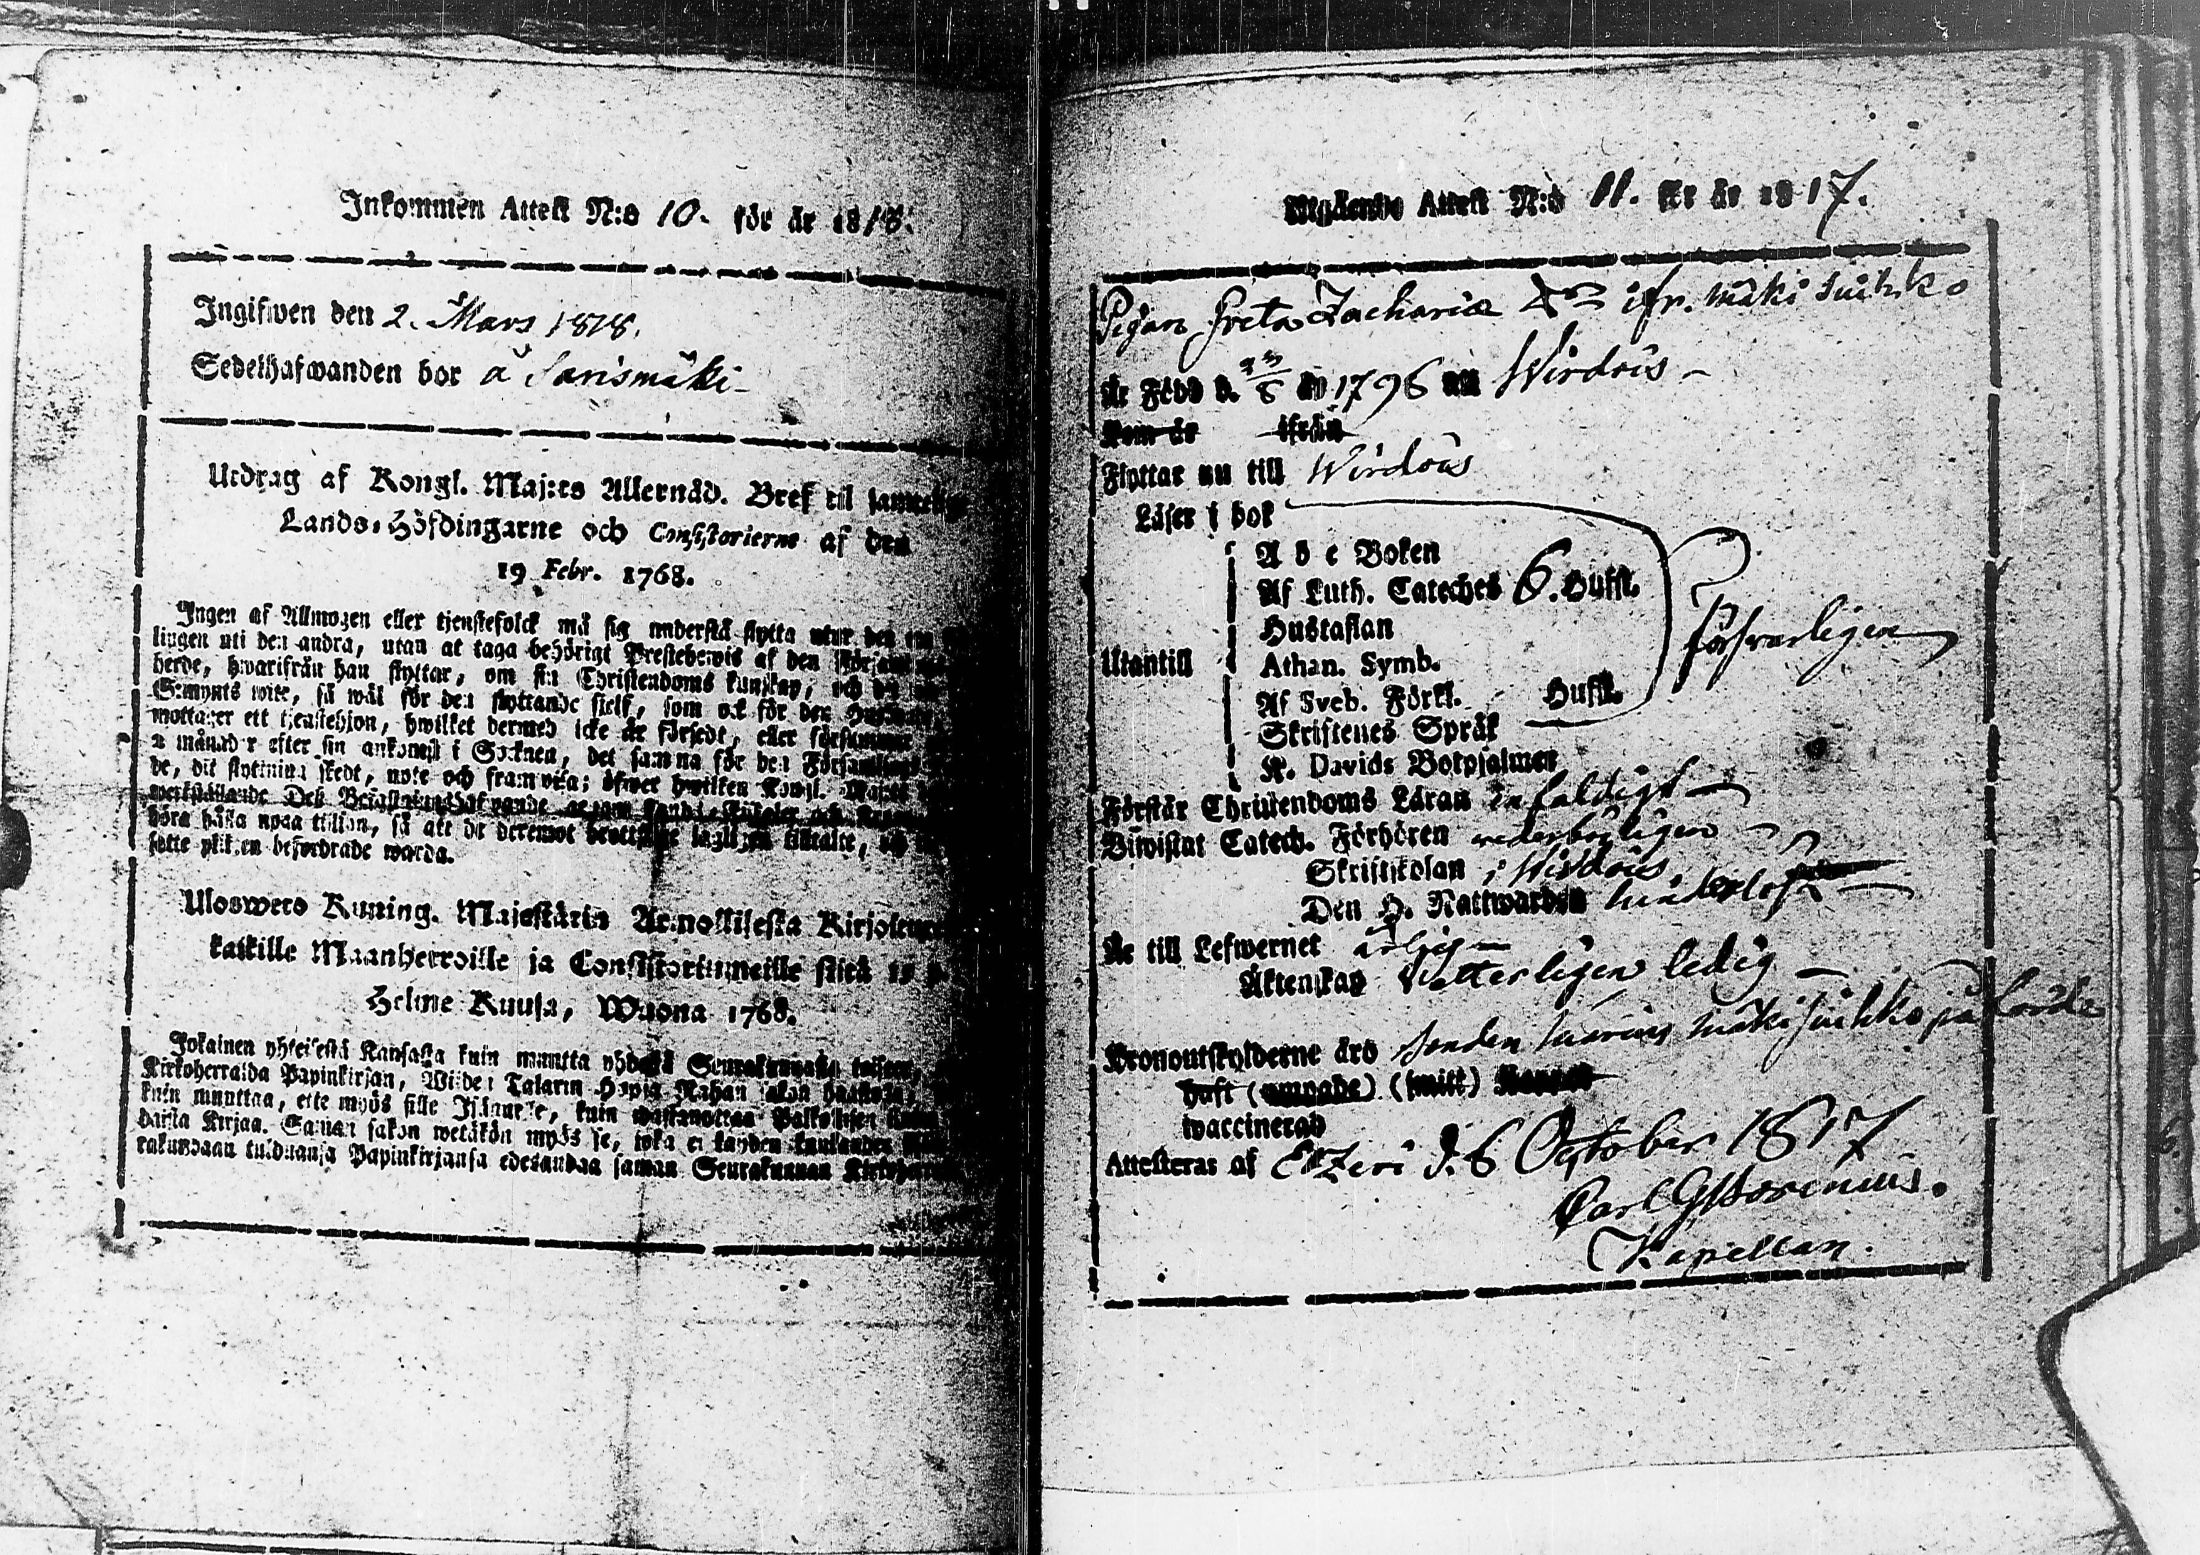 Inkommen Attest N:o 10. för år 1818.
Ingifwen den 2. Mars 1818.
Sedelhafwanden bor å Sarismäki
Utdrag af Kongl. Maj:ts Allernåd. Bref til samtelige
Lands-Höfdingarne och Consistorierne af den
19 Febr. 1768.
Ingen af Allmogen eller tjenstefolck må sig understå flytta utur den ena
lingen uti den andra, utan at taga behörigt Prestebewis af den
herde, hwarifrån han flyttar, om sin Christendoms kunskap, och
wite, så wäl för den flyttande sielf, som ock för den
mottager ett tjenstehjon, hwilket dermed icke är försedt, eller försummar
2 månader efter sin ankomst i Socknen, det samma för den
de, dit flyttning skedt, upte och framwisa; öfwer hwilken Kongl. Maj:ts
werkställande Dess Befallningshafwande
höra hålla noga tillsyn, så att de deremot brottslige lagligen tilltalte, och
satte plikten befordrade warda.
Uloswero Kuning. Majestätin Armollisesta Kirjoituxesta
kaikille Maanherroille ja Consistoriumeille siitä 19 p.
Helme Kuusa, Wuona 1768.
Jokainen yhteisestä Kansasta kuin muutta yhdestä Seurakunnasta toiseen,
Kirkoherralda Papinkirjan, Wiiden Talarin Hopia Rahan sakon haastolla,
kuin muuttaa, ette myös sille Isännälle, kuin wastanottaa Palkollisen ilman
daista Kirjaa. Saman sakon wetäkön myös se, joka ei kahden kuukauden
rakundaan tulduansa Papinkirjansa edesandaa saman Seurakunnan Kirkoherralle
Utgående Attest N:o 11. för år 1817.
Pigan Greta Zachariæ Dr ifr. Mäki Suihko
Är Född d. 8 år 1796 uti Wirdois
Kom år ifrån
Flyttar nu till Wirdois
Läser i bok
A b c Boken
Af Luth. Cateches 6. Hufst.
Hustaflan
Utantill Athan. Symb.
Af Sveb. Förkl. Hufst.
Skriftenes Språk
K. Davids Botpsalmer
Försvarligen
Förstår Christendoms Läran enfaldigt
Biwistat Catech. Förhören wederbörligen
Skriftskolan i Wirdois.
Den H. Nattwarden hinderlöst
Är till Lefwernet ärlig
Äktenskap ledig
Kronoutskylderne äro Mäki Suihko på
haft (omgade) (smitt) Koppor
waccinerad
Attesteras af Etzeri d. 6 October 1817
Carl G
Kapellan.